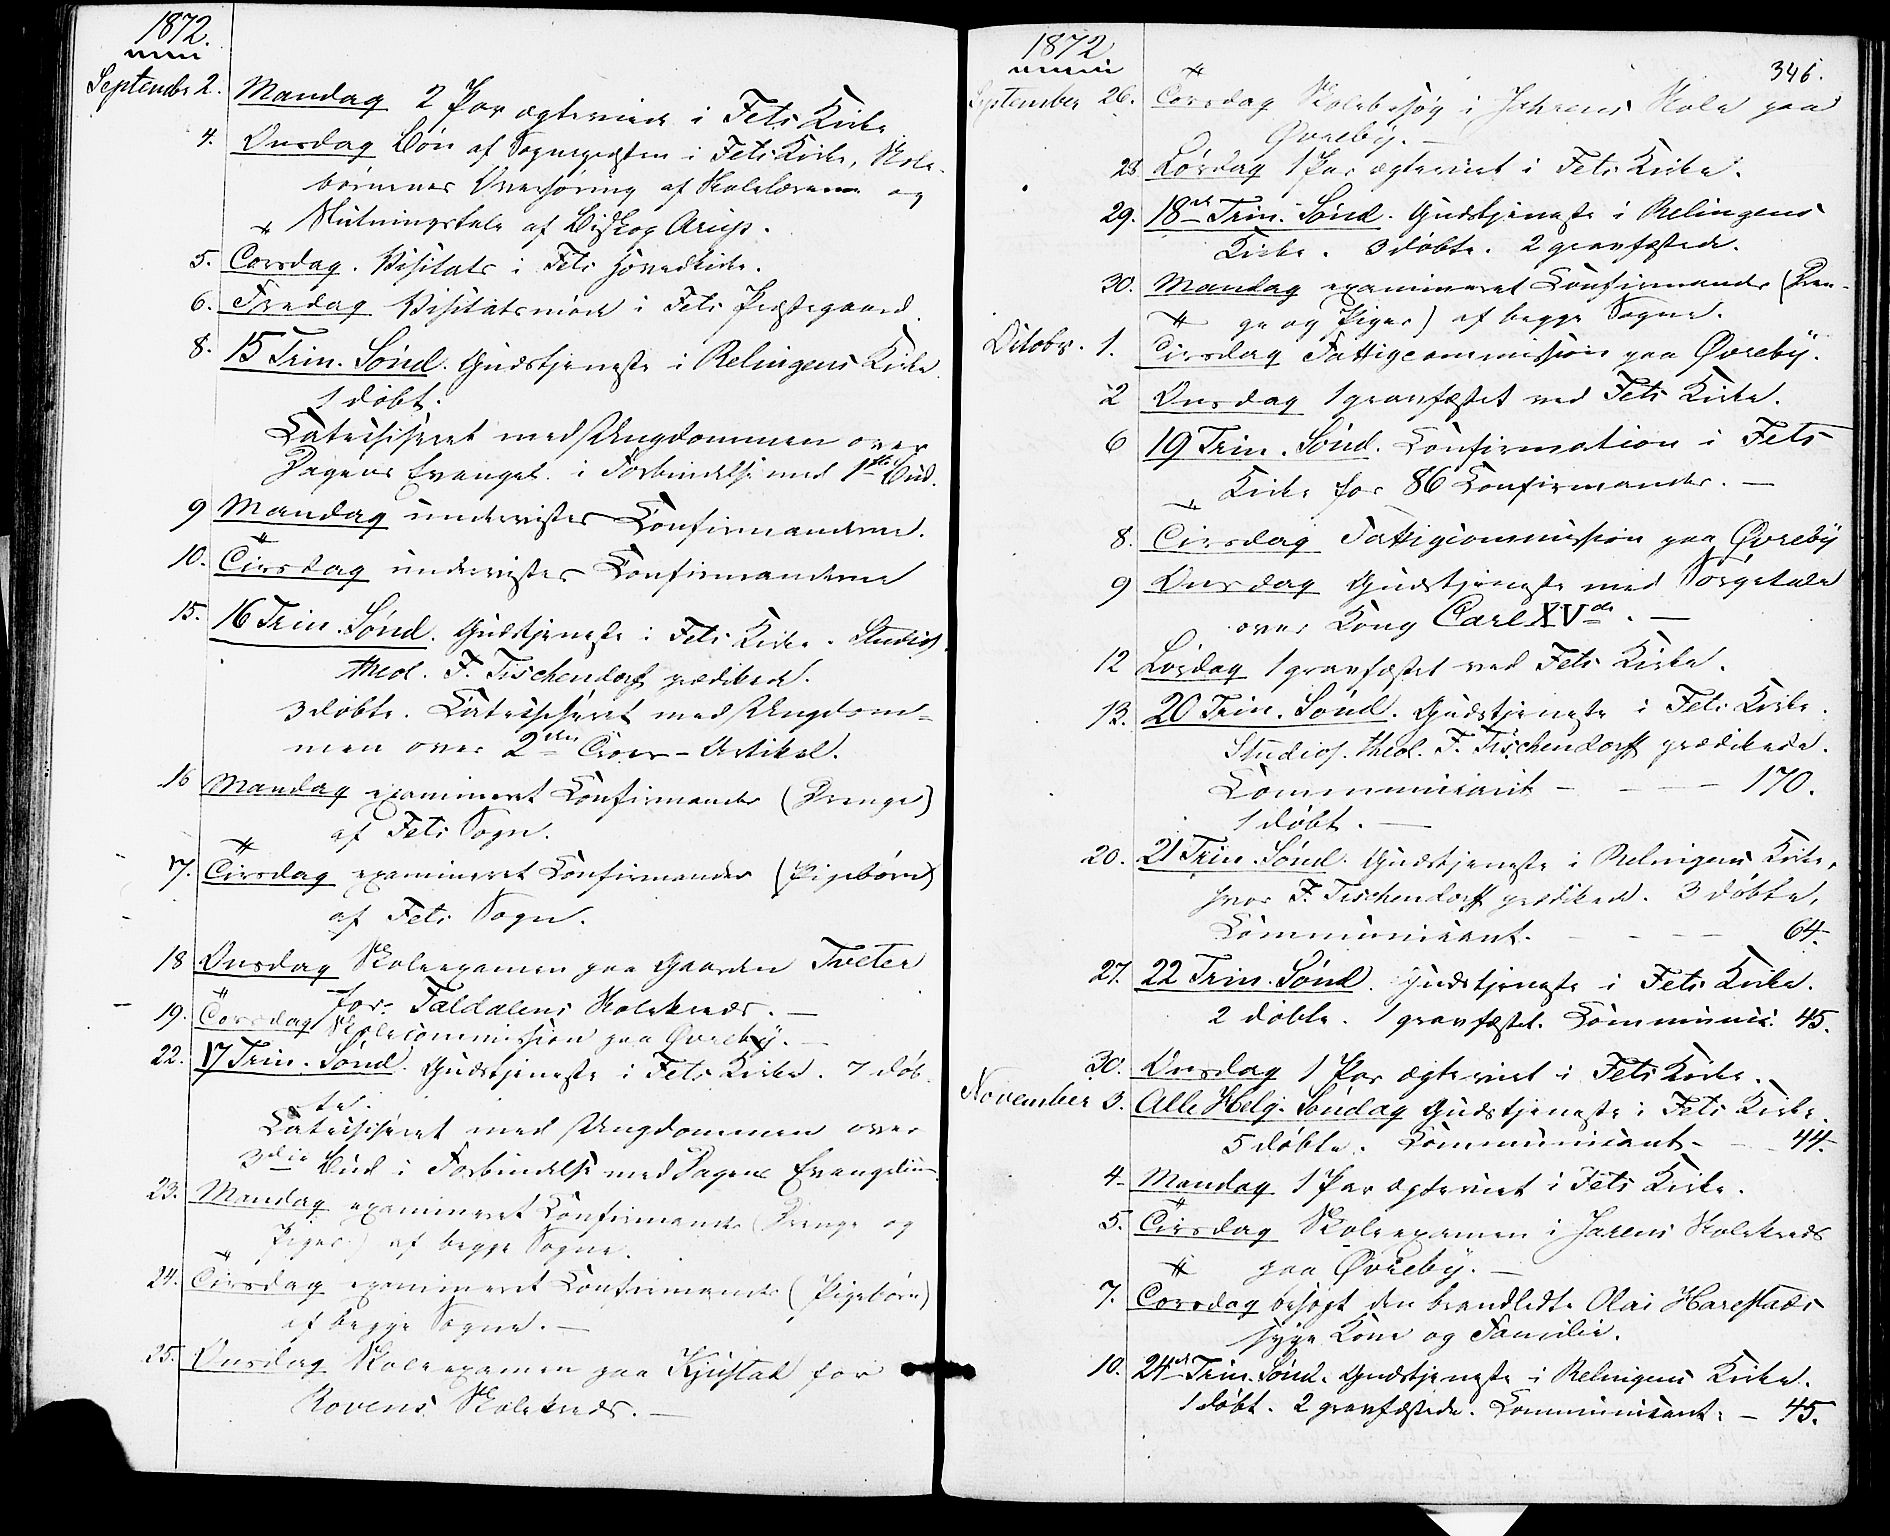 1872.
September 2. Mandag 2 Par ægteviede i Fets Kirke
4. Onsdag Bøn af Sognepresten i Fets Kirke, Skole-
børnenes Overhøring af Skolelærerne og
Slutningstale af Biskop Arup.
5. Torsdag. Visitats i Fets Hovedkirke.
6. Fredag Visitatsmøde i Fets Præstegaard.
8. 15 Trin. Sønd. Gudstjeneste i Relingens Kirke.
1 døbt.
Catechiseret med Ungdommen over
Dagens Evangel. i Forbindelse med 1ste Bud.
9 Mandag undervistes Confirmanderne.
10. Tirsdag undervistes Confirmanderne
15. 16 Trin. Sønd. Gudstjeneste i Fets Kirke. Studios.
theol. F. Tischendorf prædikede.
3 døbte. Catechiseret med Ungdom=
men over 2den Troes-Artikel.
16 Mandag examineret Confirmander (Drenge)
af Fets Sogn.
17. Tirsdag examineret Confirmander (Pigebørn)
af Fets Sogn.
18 Onsdag Skoleexamen paa Gaarden Tveter
for Faldalens Skolekreds. —
19. Torsdag Skolecommission paa Øvreby. —
22. 17 Trin. Sønd. Gudstjeneste i Fets Kirke. 7 døb-
te.
Catechiseret med Ungdommen over
3die Bud i Forbindelse med Dagens Evangelium
23. Mandag examineret Confirmander (Drenge og
Piger) af begge Sogne.
24. Tirsdag examineret Confirmander (Pigebørn)
af begge Sogne. —
25. Onsdag Skoleexamen paa Kjustad for
Rovens Skolekreds. —
1872
346.
September 26. Torsdag Skolebesøg i Jahrens Skole paa
Øvreby. —
28 Lørdag 1 Par ægteviet i Fets Kirke.
29. 18de Trin. Sønd. Gudstjeneste i Relingens
Kirke. 3 døbte. 2 gravfæstede.
30. Mandag examineret Confirmander (Dren-
ge og Piger) af begge Sogne.
Octobr. 1. Tirsdag Fattigcommission paa Øvreby.
2 Onsdag 1 gravfæstet ved Fets Kirke.
6 19 Trin. Sønd. Confirmation i Fets
Kirke for 86 Confirmander. —
8. Tirsdag Fattigcommission paa Øvreby
9 Onsdag Gudstjeneste med Sørgetale
over Kong Carl XVde. —
12 Lørdag 1 gravfæstet ved Fets Kirke.
13. 20 Trin. Sønd. Gudstjeneste i Fets Kirke.
Studios. theol. F. Tischendorff prædikede.
Communicant - - - - 170.
1 døbt. —
20. 21 Trin. Sønd. Gudstjeneste i Relingens Kirke,
hvor F. Tischendorff prædikede. 3 døbte,
Communicant. - - - - 64.
27. 22 Trin. Sønd. Gudstjeneste i Fets Kirke.
2 døbte. 1 gravfæstet. Communic. 45.
30. Onsdag 1 Par ægteviet i Fets Kirke.
November 3. Alle Helg. Søndag Gudstjeneste i Fets Kirke.
5 døbte. Communicant. - - 44.
4- Mandag 1 Par ægteviet i Fets Kirke.
5. Tirsdag Skoleexamen i Jarens Skolekreds
paa Øvreby. —
7. Torsdag besøgt den brandlidte Olai Harestads
syge Kone og Familie.
10. 24de Trin. Sønd. Gudstjeneste i Relingens Kirke.
1 døbt. 2 gravfæstede. Communicant. - 45.